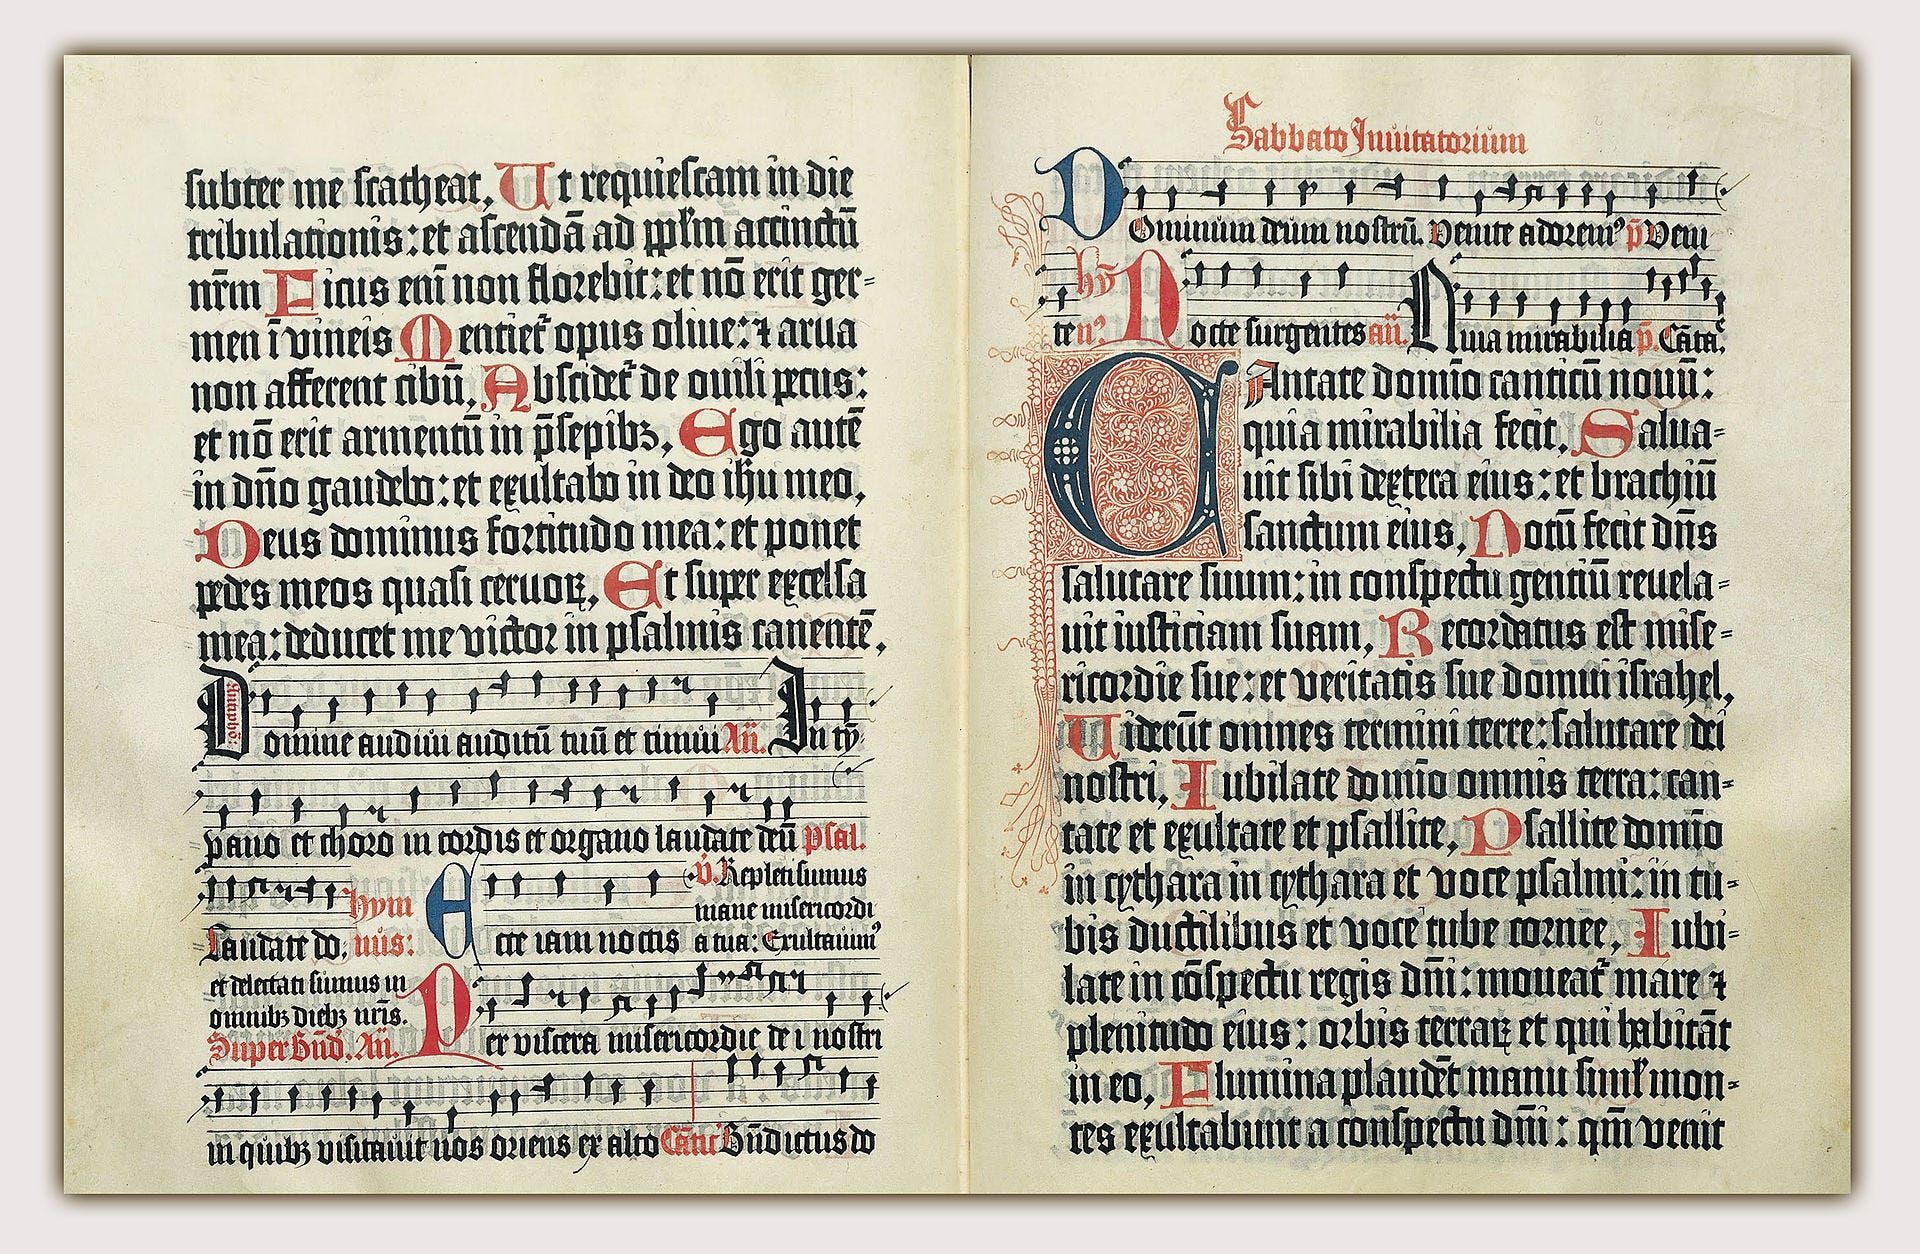 subter me scatheat, Ut requiescam in die
tribulationis: et ascendā ad pplm accinctū
nr̄m Ficus eni non florebit: et nō erit ger=
men ī vineis Mentiet᷑ opus oliue: ⁊ arua
non afferent cibū, Abscidet᷑ de ouili pecus:
et nō erit armentū in p̄sepibꝫ, Ego autē
in dño gaudebo: et exultabo in deo ihu meo,
Deus dominus fortitudo mea: et ponet
pedes meos quasi ceruoꝝ, Et super excelsa
mea: deducet me victor in psalmis canentē,
Domine audiui auditū tuū et timui Añ. In ty-
pano et choro in cordis et organo laudate deū psal.
Laudate do: hymnus: Ecce iam noctis
v̄. Repleti sumus
mane misericordi
a tua: Exultauimꝰ
et delectati sumus in
omnibꝫ diebꝫ nr̄is.
Super bn̄d. Añ. Per viscera misericordie dei nostri
in quibꝫ visitauit nos oriens ex alto Cāntic Bn̄dictus do
Sabbato Inuitatorium
Dominum deum nostrū. Venite adoremꝰ p̄ Veni
te hȳnꝰ. Nocte surgentes añ. Quia mirabilia p̄. Cāta,
CAntate domīo canticū nouū:
quia mirabilia fecit, Salua=
uit sibi dextera eius: et brachiū
sanctum eius, Notū fecit dn̄s
salutare suum: in conspectu gentiū reuela=
uit iusticiam suam, Recordatus est mise=
ricordie sue: et veritatis sue domui israhel,
Uiderūt omnes termini terre: salutare dei
nostri, Iubilate domīo omnis terra: can=
tate et exultate et psallite, Psallite domīo
in cythara in cythara et voce psalmi: in tu=
bis ductilibus et voce tube cornee, Iubi=
late in cōspectu regis dn̄i: moueat᷑ mare ⁊
plenitudo eius: orbis terraꝝ et qui habitāt
in eo, Flumina plaudēt manu simꝉ mon=
tes exultabunt a conspectu dn̄i: qm̄ venit